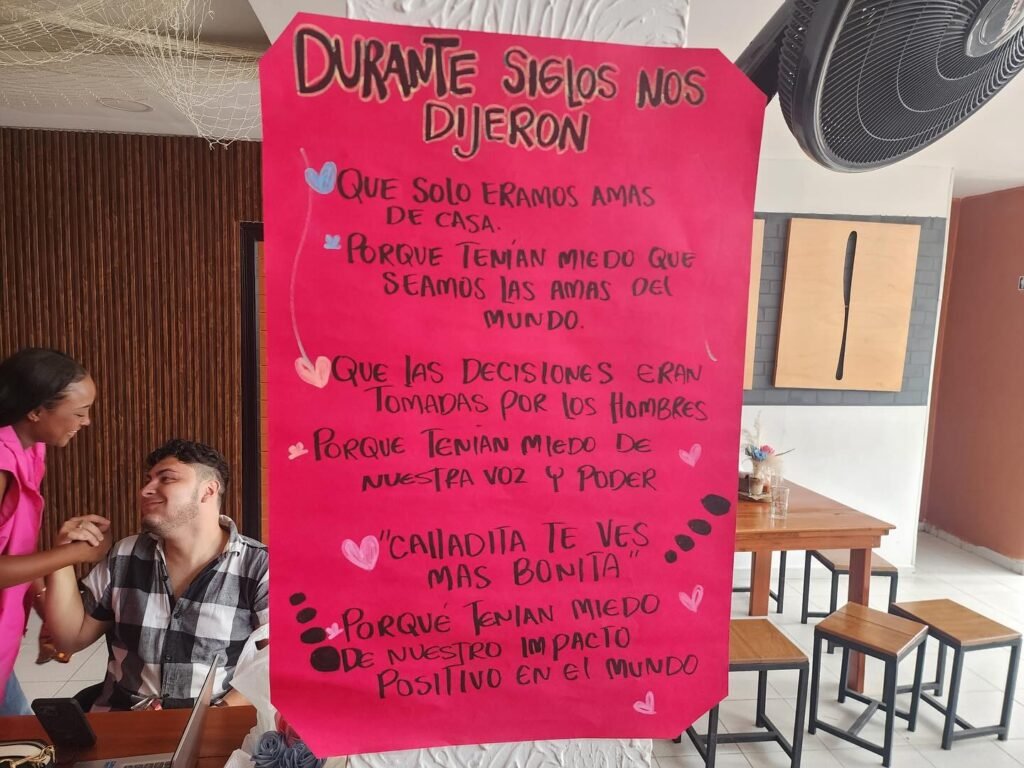 DURANTE SIGLOS NOS
DIJERON
QUE SOLO ERAMOS AMAS
DE CASA.
PORQUE TENÍAN MIEDO QUE
SEAMOS LAS AMAS DEL
MUNDO.
QUE LAS DECISIONES ERAN
TOMADAS POR LOS HOMBRES
PORQUE TENÍAN MIEDO DE
NUESTRA VOZ Y PODER
"CALLADITA TE VES
MAS BONITA"
PORQUÉ TENIAN MIEDO
DE NUESTRO IMPACTO
POSITIVO EN EL MUNDO